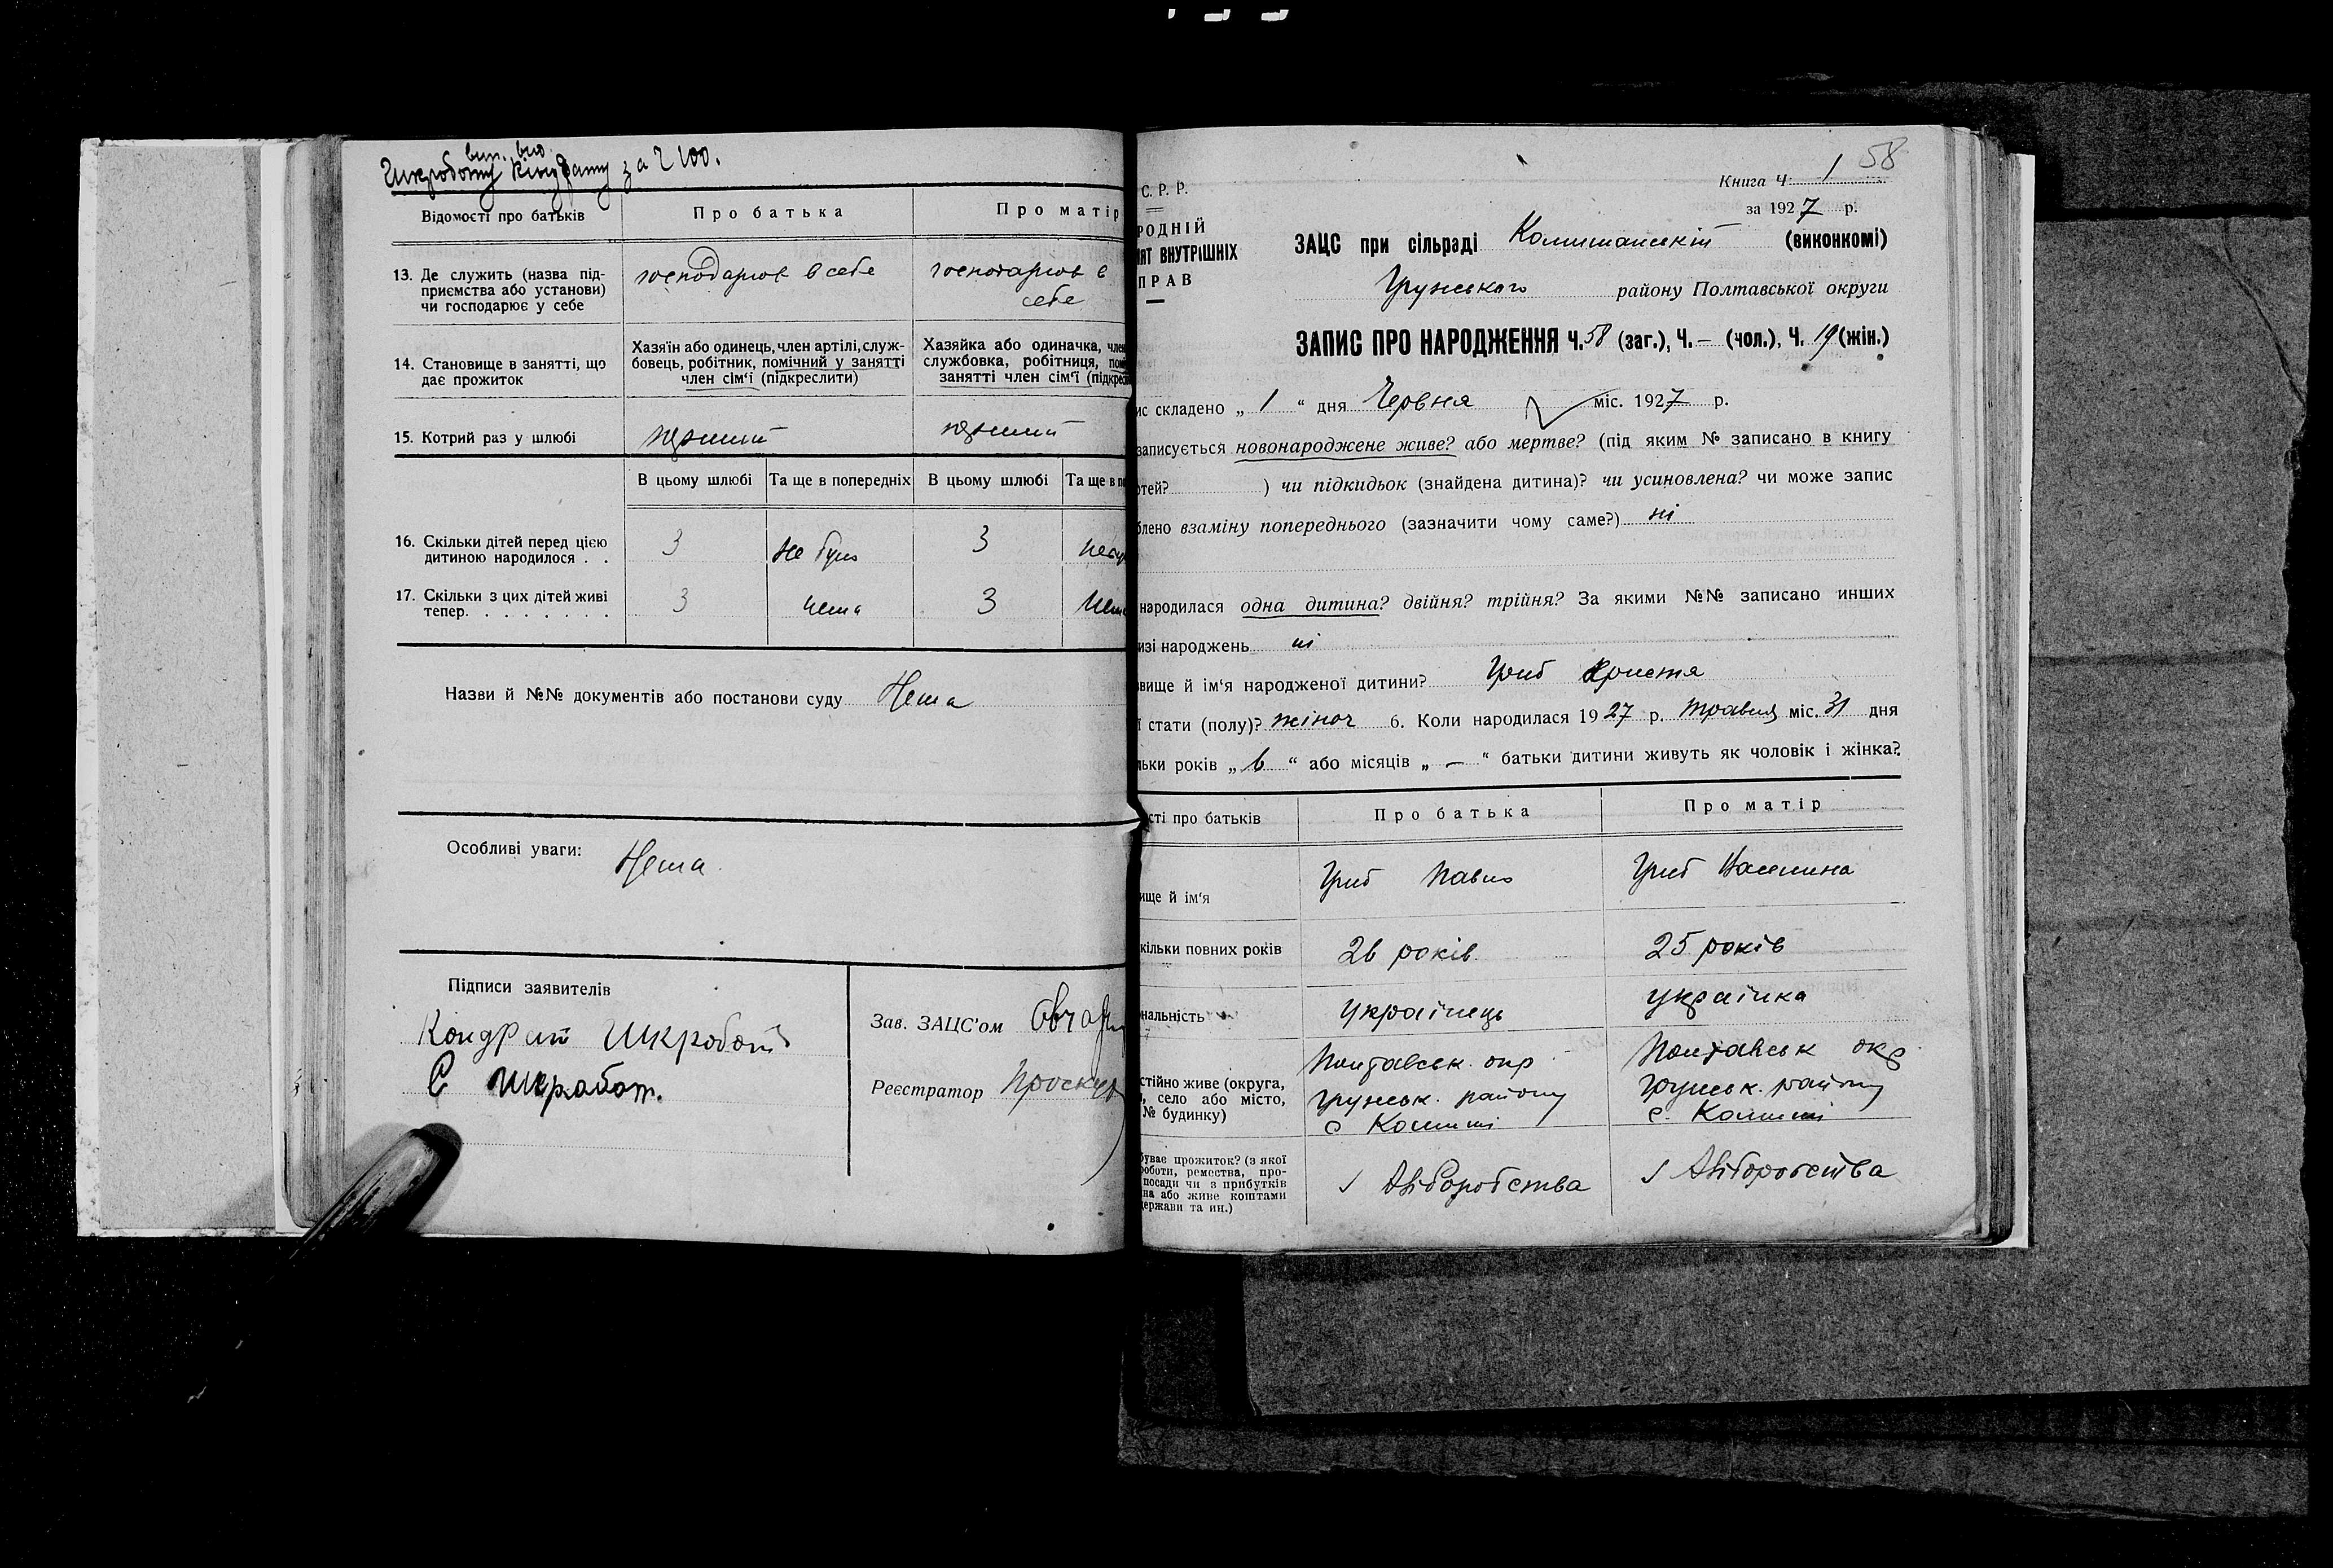 за 2 100.
Відомості про батьків
Про батька
Про матір
13. Де служить (назва під-
приємства або установи)
чи господарює у себе
господарює в себе
господарює в
себе
14. Становище в занятті, що
дає прожиток
Хазяїн або одинець, член артілі, служ-
бовець, робітник, помічний у занятті
член сім'ї (підкреслити)
Хазяйка або одиначка, член
службовка, робітниця, пом
занятті член сім'ї (підкрес
15. Котрий раз у шлюбі
перший
перший
В цьому шлюбі
Та ще в попередніх
В цьому шлюбі
Та ще в п
16. Скільки дітей перед цією
дитиною народилося . .
3
не було
3
17. Скільки з цих дітей живі
тепер. . . . . . . .
3
нема
3
Назви й №№ документів або постанови суду Нема
Особливі уваги: Нема.
Підписи заявителів
Кондрат Шкробот
С Шкработ.
Зав. ЗАЦС'ом
Реєстратор
58
Книга Ч. 1
за 1927 р.
С. Р. Р.
РОДНІЙ
ІЯТ ВНУТРІШНІХ
ПРАВ
ЗАЦС при сільраді (виконкомі)
Грунського району Полтавської округи
ЗАПИС ПРО НАРОДЖЕННЯ Ч. 58 (заг.), Ч. – (чол.), Ч. 19 (жін.)
ис складено „ 1 “ дня Червня міс. 1927 р.
записується новонароджене живе? або мертве? (під яким № записано в книгу
ртей? ) чи підкидьок (знайдена дитина)? чи усиновлена? чи може запис
блено взаміну попереднього (зазначити чому саме?) ні
народилася одна дитина? двійня? трійня? За якими №№ записано инших
изі народжень ні
звище й ім'я народженої дитини? Гриб Христя
ї стати (полу)? жіноч 6. Коли народилася 1927 р. травня міс. 31 дня
льки років „ 6 “ або місяців „ – “ батьки дитини живуть як чоловік і жінка?
сті про батьків
Про батька
Про матір
вище й ім'я
Гриб Павло
Гриб
кільки повних років
26 років
25 років
нальність
українець
українка
стійно живе (округа,
, село або місто,
№ будинку)
Полтавськ. окр
Грунськ. району
с Комиші
Полтавськ окр
Грунськ. району
с. Комиші
буває прожиток? (з якої
роботи, ремества, про-
посади чи з прибутків
на або живе коштами
держави та ин.)
з хліборобства
з хліборобства